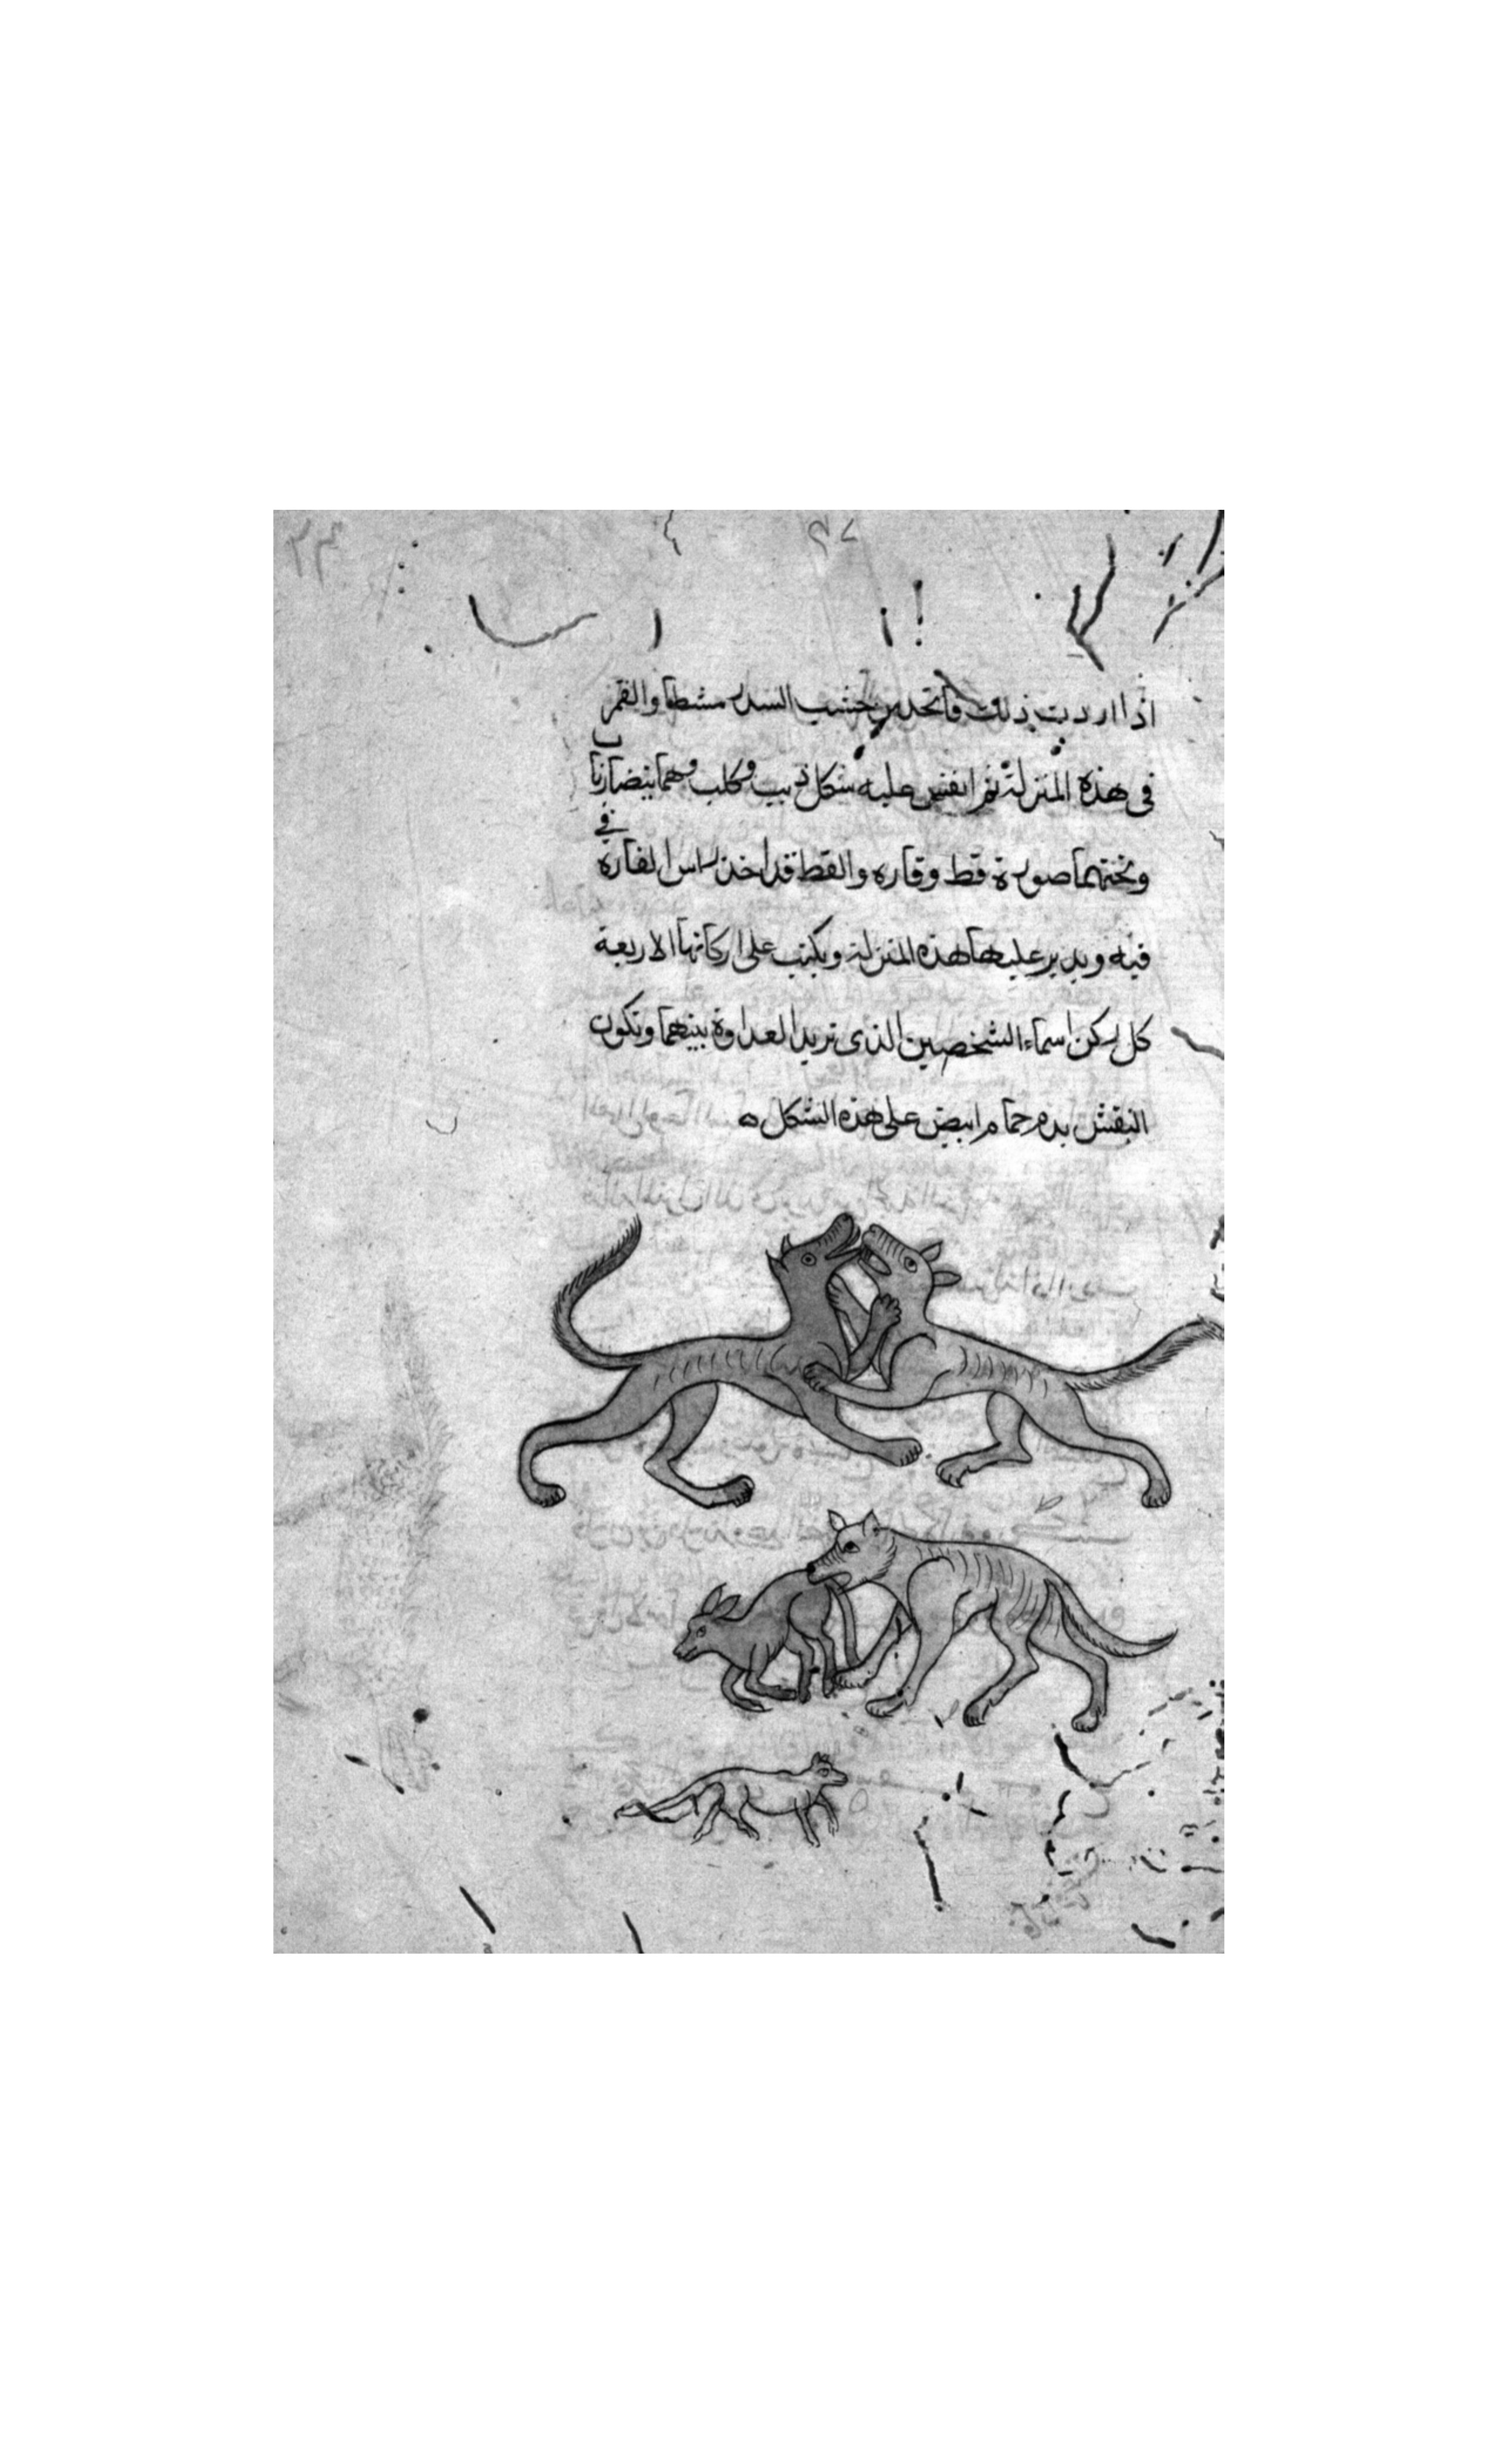 اذا اردت ذلك فاتخذ من خشب السدر مشطا والقمر
فى هذه المنزلة ثم انقش عليه شكل ذيب وكلب وهما يتضاربا
وتحتهما صورة قط وفاره والقط قد اخذ راس الفاره في
فيه ويدير عليها هذه المنزلة ويكتب على اركانها الاربعة
كل ركن اسماء الشخصين الذى تريد العداوة بينهما وتكون
النقش بدم حمام ابيض على هذه الشكل ه